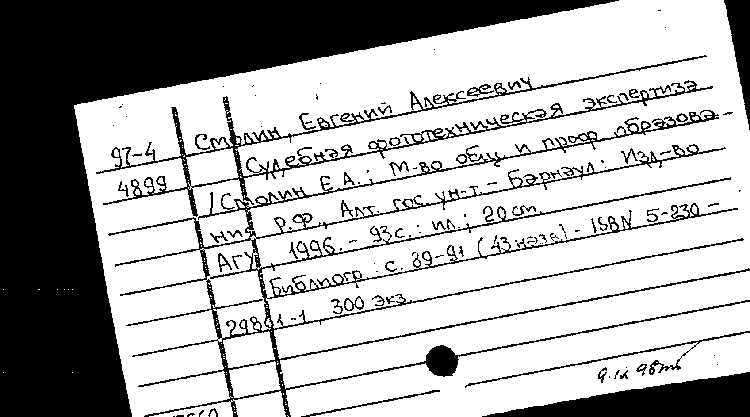 Смолин, Евгений Алексеевич
97-4
4899
Судебная фототехническая экспертиза
/ Смолин Е.А.; М-во общ. и проф. образова-
ния Р.Ф., Алт. гос. ун-т. - Барнаул: Изд-во
АГУ, 1996. - 93с.: ил.; 20см.
Библиогр.: с. 89-91 (43 назв.) - ISBN 5-230-
29891-1, 300 экз.